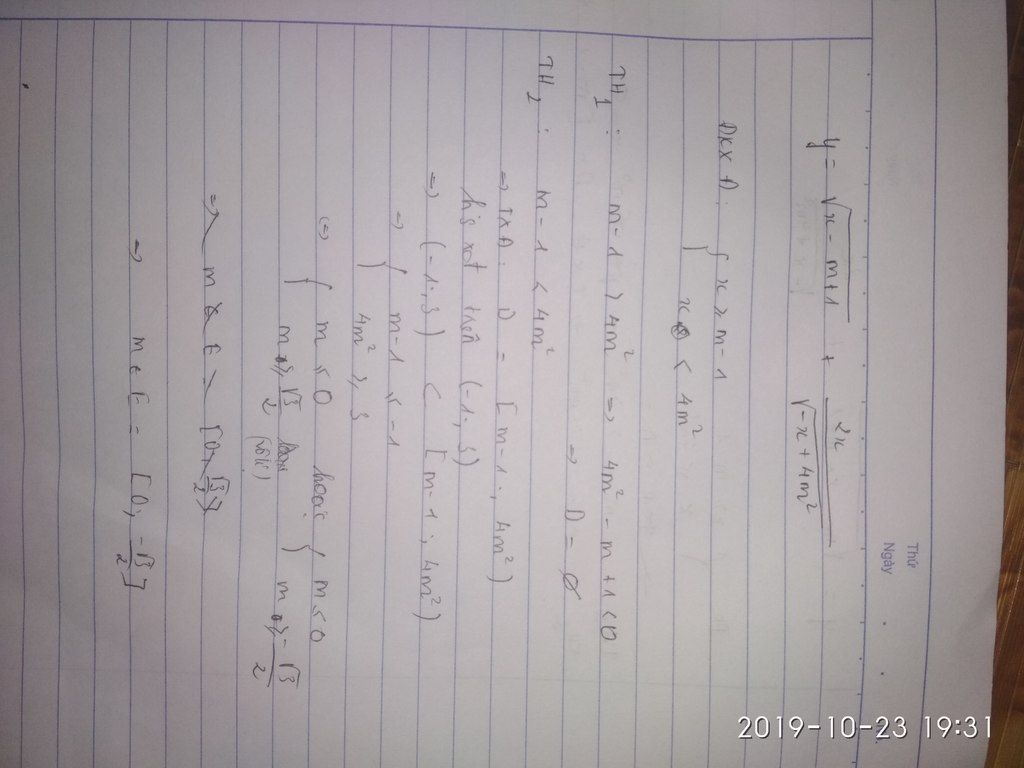 Thứ
Ngày
y = √(x - m + 1) + 2x / √(-x + 4m²)
ĐKXĐ: { x ≥ m - 1
x < 4m²
TH1: m - 1 > 4m² => 4m² - m + 1 < 0
=> D = ∅
TH2: m - 1 < 4m²
=> TXĐ: D = [m - 1; 4m²)
h/s xđ trên (-1, 3)
=> (-1; 3) ⊂ [m - 1; 4m²)
=> { m - 1 ≤ -1
4m² ≥ 3
<=> { m ≤ 0 hoặc { m ≤ 0
m ≥ √3/2 (loại) m ≥ -√3/2
=> m ∈ [0, √3/2}
=> m ∈ [ = [0, -√3/2]
2019-10-23 19:31